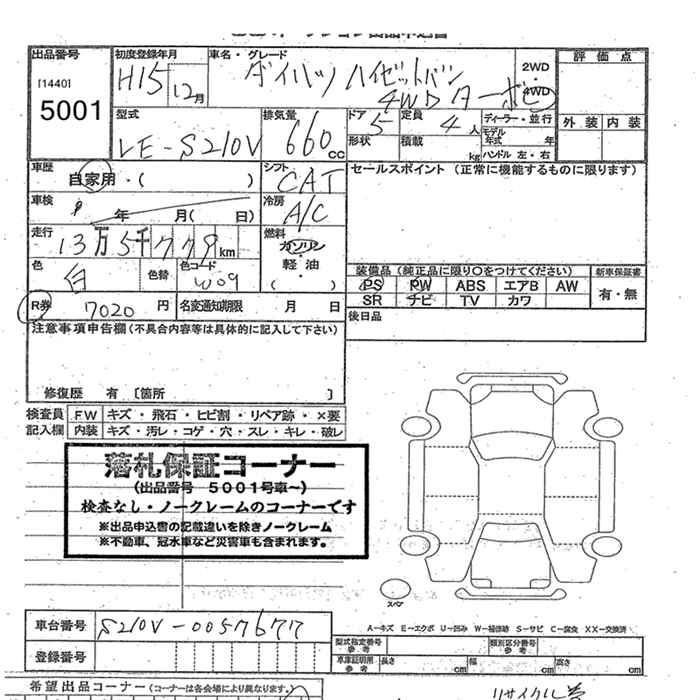 出品番号
[1440]
5001
初度登録年月
H15 12月
車名・グレード
ダイハツ ハイゼットバン
4WD ターボ
2WD
・
4WD
評価点
外装 内装
型式
LE-S210V
排気量
660cc
ドア 5
形状
定員 4人
積載 kg
ディーラー・並行
モデル年式 年
ハンドル 左・右
車歴
自家用・( )
シフト
CAT
セールスポイント (正常に機能するものに限ります)
車検
年 月( 日)
冷房
A/C
走行
13万5千779km
燃料
ガソリン
軽油
( )
色
白
色替
色コード
W09
装備品 (純正品に限り○をつけてください)
新車保証書
PS PW ABS エアB AW
SR ナビ TV カワ
有・無
R券 7020円
名変通知期限 月 日
後日品
注意事項申告欄 (不具合内容等は具体的に記入して下さい)
修復歴 有 〔箇所 〕
検査員記入欄
FW キズ・飛石・ヒビ割・リペア跡・×要
内装 キズ・汚レ・コゲ・穴・スレ・キレ・破レ
落札保証コーナー
(出品番号 5001号車~)
検査なし・ノークレームのコーナーです
※出品申込書の記載違いを除きノークレーム
※不動車、冠水車など災害車も含まれます。
スペア
車台番号 S210V-0057677
登録番号
A―キズ E―エクボ U―凹み W―補修跡 S―サビ C―腐食 XX―交換済
型式指定番号
参考
類別区分番号
参考
車庫証明用
参考
長さ cm 幅 cm 高さ cm
希望出品コーナー (コーナーは各会場により異なります。)
リサイクル券